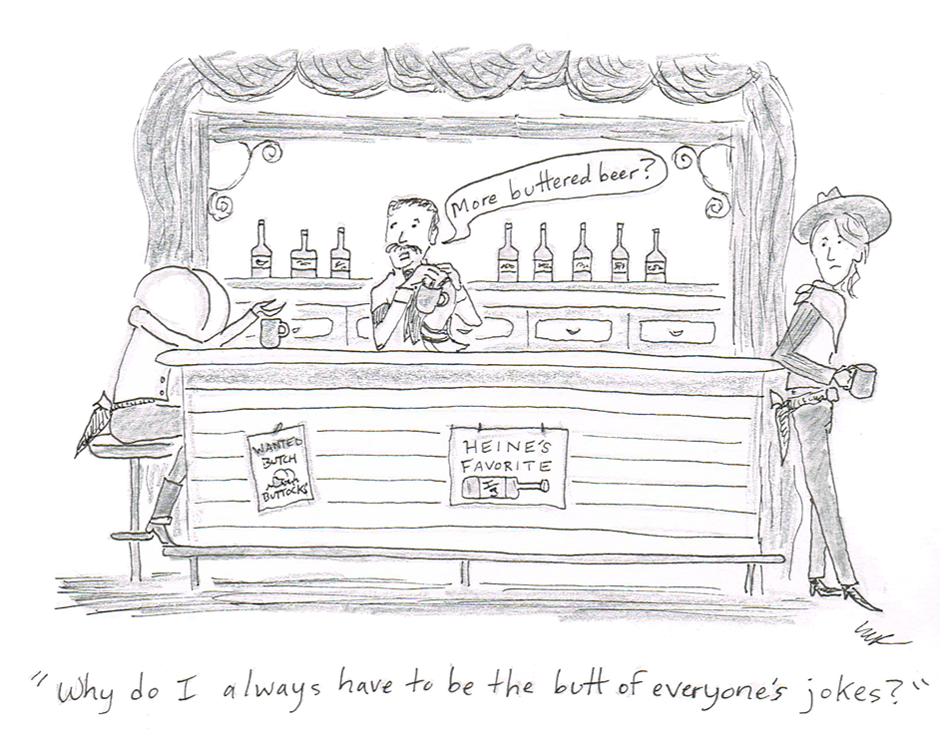 More buttered beer?
WANTED
BUTCH
BUTTOCKS
HEINE'S
FAVORITE
"Why do I always have to be the butt of everyone's jokes?"